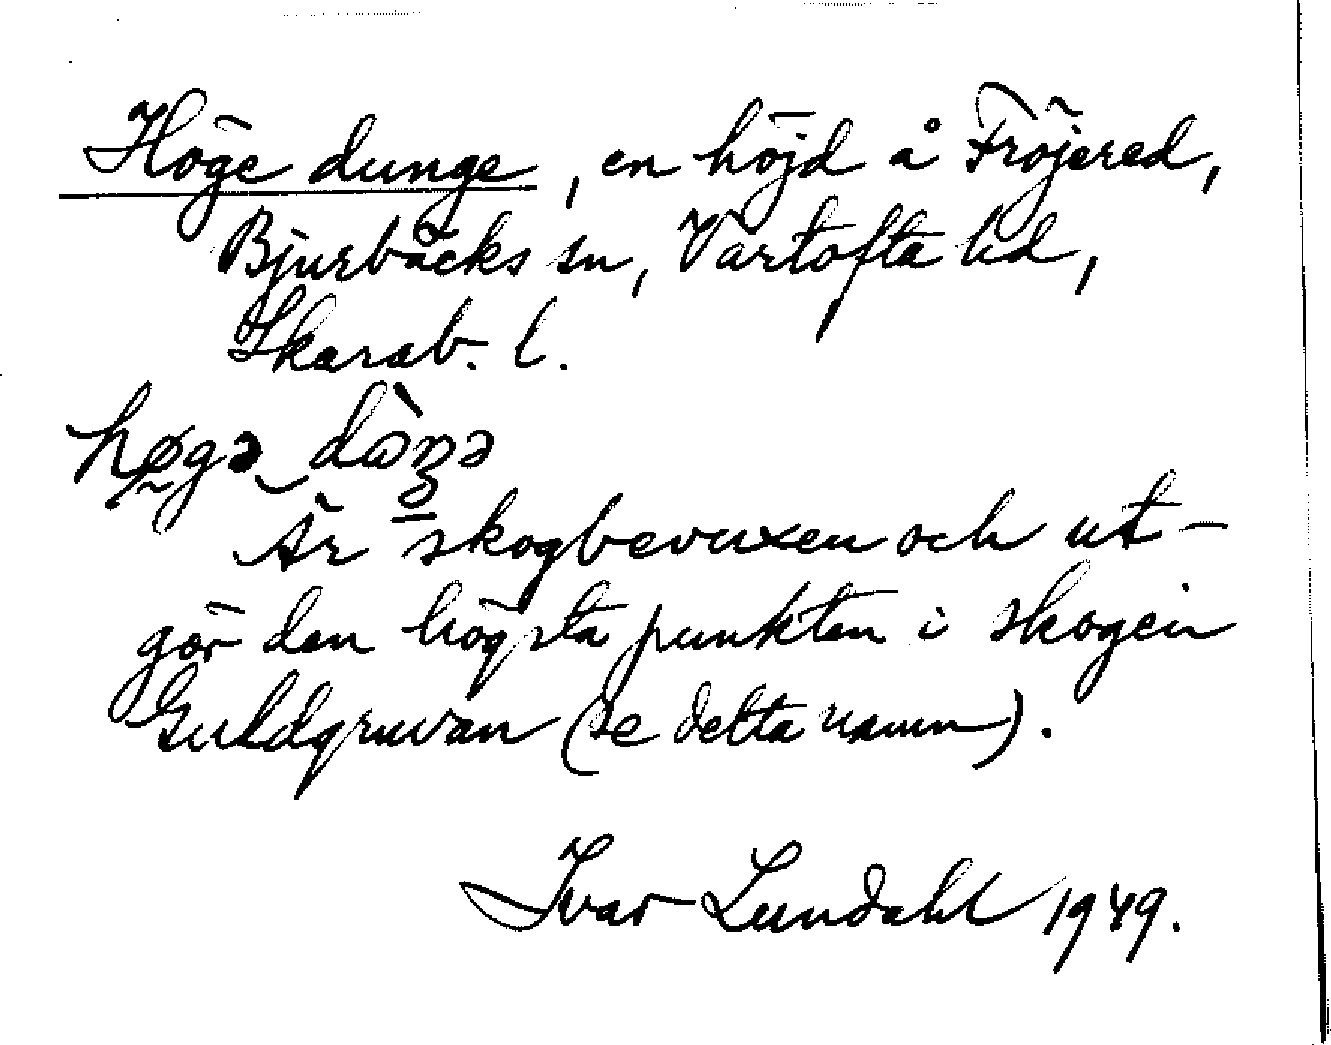 Höge dunge, en höjd å Fröjered,
Bjurbäcks sn, Vartofta hd,
Skarab. l.
høgə dɷ̀ŋə
Är skogbevuxen och ut-
gör den högsta punkten i skogen
Guldgruvan (se detta namn).
Ivar Lundahl 1949.